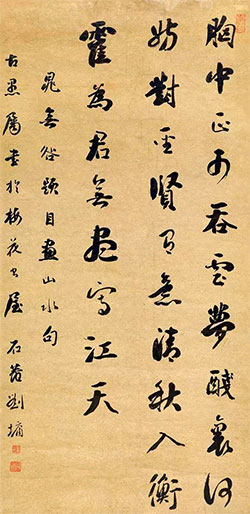 胸中正可吞雲夢醆裏何
妨對聖賢有意清秋入衡
霍為君無盡寫江天
晁無咎題自畫山水句
古愚屬書於梅花書屋 石菴劉墉